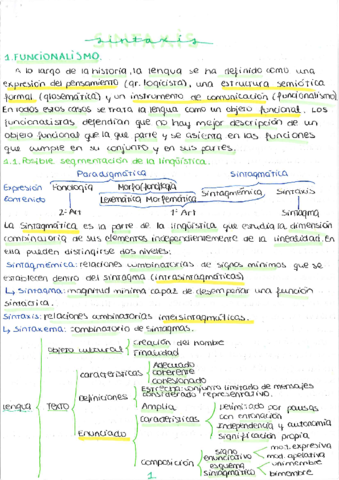 sintaxis
1. FUNCIONALISMO.
A lo largo de la historia, la lengua se ha definido como una
expresión del pensamiento (gr. logicista), una estructura semiótica
formal (glosemática) y un instrumento de comunicación (funcionalismo)
En todos estos casos se trata la lengua como un objeto funcional. Los
funcionalistas defendían que no hay mejor descripción de un
objeto funcional que la que parte y se asienta en las funciones
que cumple en su conjunto y en sus partes.
1.1. Posible segmentación de la lingüística.
Paradigmática Sintagmática
Expresión Fonología Morfofonología Sintagmémica Sintaxis
Contenido Lexemática Morfemática
2ª Art 1ª Art Sintagma
La Sintagmática es la parte de la lingüística que estudia la dimensión
combinatoria de sus elementos independientemente de la linealidad. En
ella pueden distinguirse dos niveles:
Sintagmémica: relaciones combinatorias de signos mínimos que se
establecen dentro del sintagma (intrasintagmáticas)
↳ Sintagma: magnitud mínima capaz de desempeñar una función
sintáctica.
Sintaxis: relaciones combinatorias intersintagmáticas.
↳ Sintaxema: combinatoria de sintagmas.
Objeto cultural Creación del hombre
Finalidad
características Adecuado
coherente
cohesionado
Lengua TEXTO Definiciones Estrecha: conjunto limitado de mensajes
considerado representativo.
Amplia
Enunciado características Delimitado por pausas
con entonación
Independencia y autonomía
Significación propia
composición signo enunciativo mod. expresiva
mod. apelativa
esquema sintagmático unimembre
bimembre
1